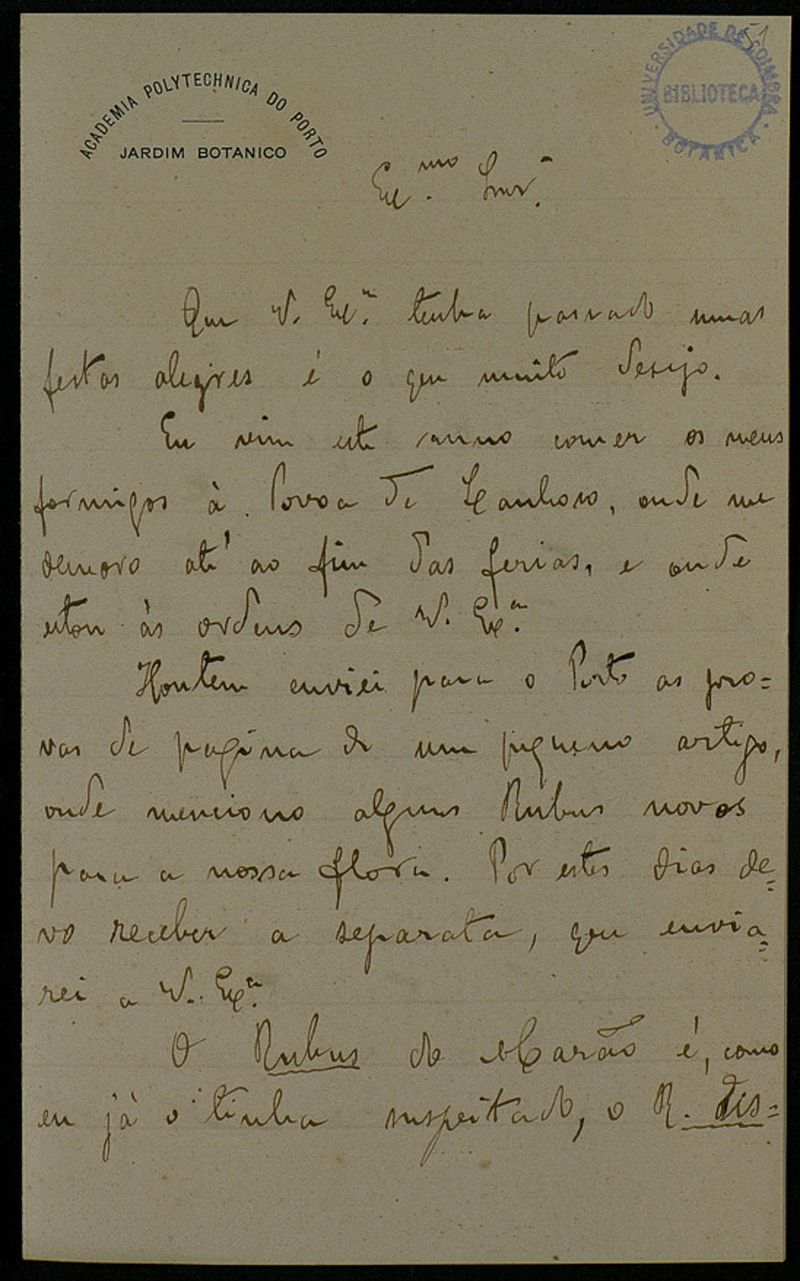 51
UNIVERSIDADE DE COIMBRA
BIBLIOTECA
BOTANICA
ACADEMIA POLYTECHNICA DO PORTO
JARDIM BOTANICO
Ex.mo Snr.
Que V. Ex.a tenha passado umas
festas alegres é o que muito desejo.
Eu vim este anno comer os meus
formigos à Povoa de Lanhoso, onde me
demoro até ao fim das ferias, e onde
estou às ordens de V. Ex.a
Hontem enviei para o Porto as pro=
vas de pagina de um pequeno artigo,
onde menciono alguns Rubus novos
para a nossa flora. Por estes dias de=
vo receber a separata, que envia=
rei a V. Ex.a
O Rubus do Marão é, como
eu já o tinha suspeitado, o R. dis=